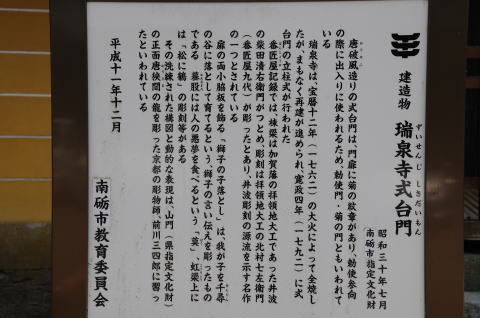 建造物
瑞泉寺式台門
ずいせんじ しきだいもん
昭和三十年七月
南砺市指定文化財
唐破風造りの式台門は、門扉に菊の紋章があり、勅使参向
の際に出入りに使われるため、勅使門・菊の門ともいわれて
いる
瑞泉寺は、宝暦十二年(一七六二)の大火によって全焼し
たが、まもなく再建が進められ、寛政四年(一七九二)に式
台門の立柱式が行われた
番匠屋記録では、棟梁は加賀藩の拝領地大工であった井波
の柴田清右衛門がつとめ、彫刻は拝領地大工の北村七左衛門
(番匠屋九代)が彫ったとあり、井波彫刻の源流を示す名作
の一つとされている
扉の両小脇板を飾る「獅子の子落とし」は、我が子を千尋
の谷に落として育てるという、獅子の言い伝えを彫ったもの
である 蟇股には人の悪夢を食べるという「獏」、虹梁上に
は「松に鶴」の彫刻等がある
その洗練された構図と動的な表現は、山門(県指定文化財)
の正面唐狭間の龍を彫った京都の彫物師、前川三四郎に習っ
たといわれている
平成十一年十二月
南砺市教育委員会